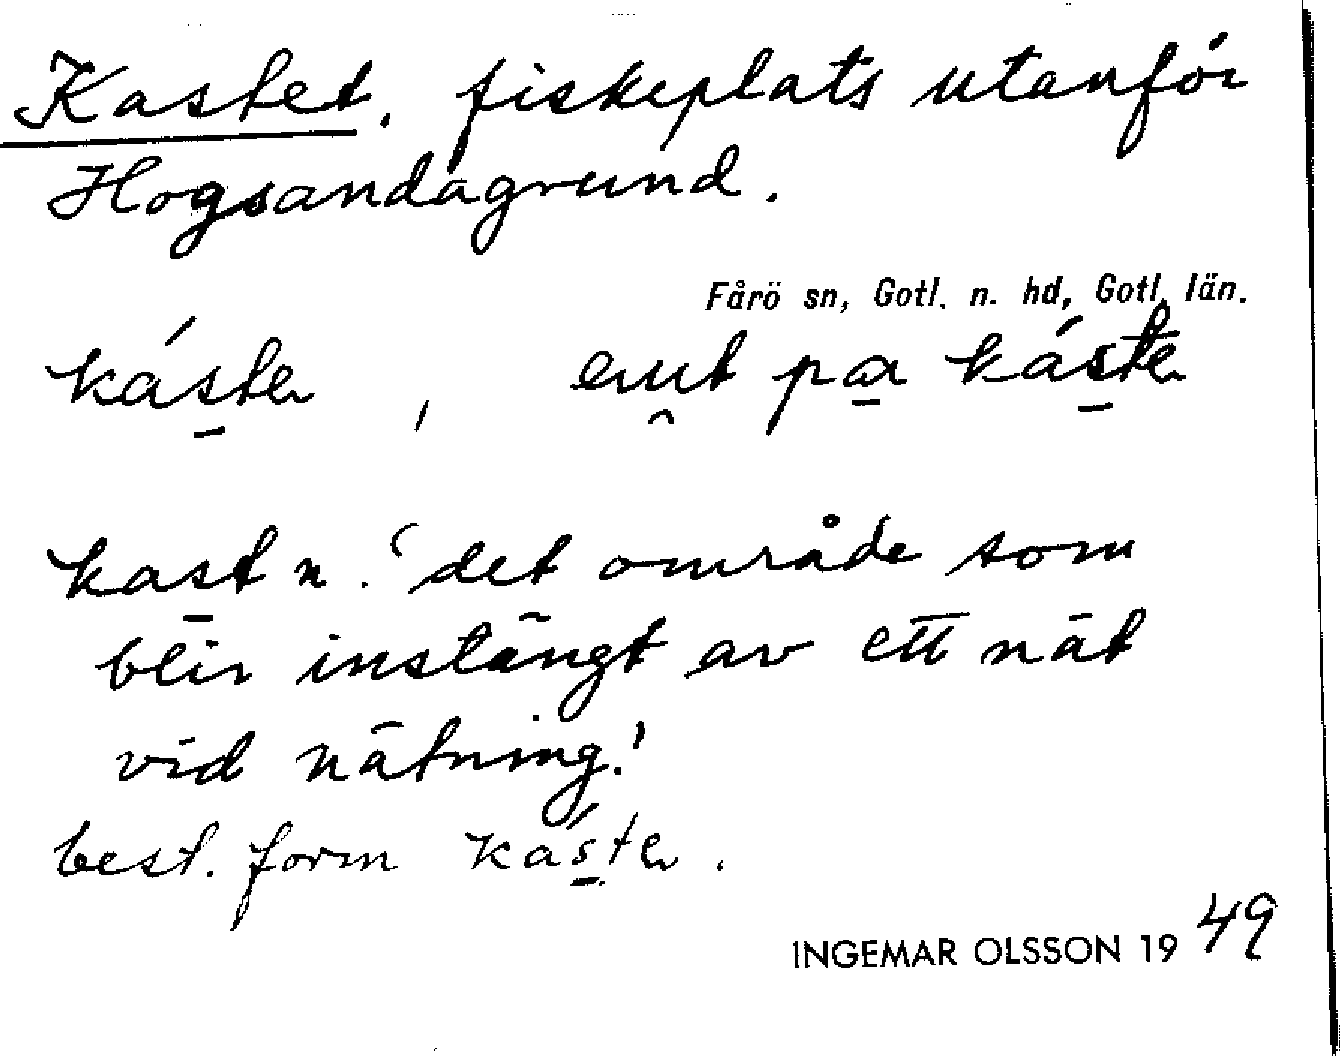 Kastet, fiskeplats utanför
Hogsandagrund.
Fårö sn, Gotl. n. hd, Gotl. län.
káste, eut par káste
kast n. 'det område som
blir instängt av ett nät
vid nätning.'
best. form káste.
INGEMAR OLSSON 1949